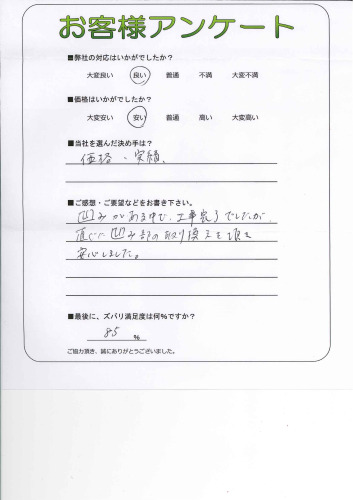 お客様アンケート
■弊社の対応はいかがでしたか?
大変良い 良い 普通 不満 大変不満
■価格はいかがでしたか?
大変安い 安い 普通 高い 大変高い
■当社を選んだ決め手は?
価格、実績、
■ご感想・ご要望などをお書き下さい。
凹みがあままで、工事完了でしたが、
直ぐに凹み部の取り換えを頂き
安心しました。
■最後に、ズバリ満足度は何%ですか?
85 %
ご協力頂き、誠にありがとうございました。